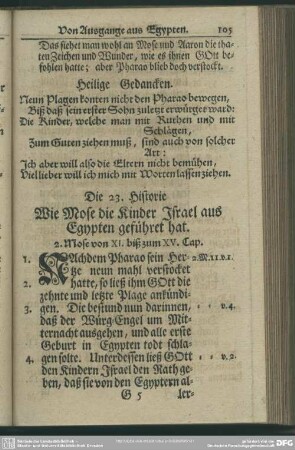 Von Ausgange aus Egypten. 105
Das siehet man wohl an Mose und Aaron die tha-
ten Zeichen und Wunder, wie es ihnen GOtt be-
fohlen hatte; aber Pharao blieb doch verstockt.
Heilige Gedancken.
Neun Plagen konten nicht den Pharao bewegen,
Biß daß sein erster Sohn zuletzt erwürget ward:
Die Kinder, welche man mit Ruthen und mit
Schlägen,
Zum Guten ziehen muß, sind auch von solcher
Art:
Ich aber will also die Eltern nicht bemühen,
Viellieber will ich mich mit Worten lassen ziehen.
Die 23. Historie
Wie Mose die Kinder Israel aus
Egypten geführet hat.
2. Mose von XI. biß zum XV. Cap.
1. NAchdem Pharao sein Her- 2. M. 11. v. 1.
tze neun mahl verstocket
2. hatte, so ließ ihm GOtt die
zehnte und letzte Plage ankündi-
3. gen. Die bestund nun darinnen, v. 4.
daß der Würg-Engel um Mit-
ternacht ausgehen, und alle erste
Geburt in Egypten todt schla-
4. gen solte. Unterdessen ließ GOtt v. 2.
den Kindern Israel den Rath ge-
ben, daß sie von den Egyptern al-
G 5 ler-
DFG